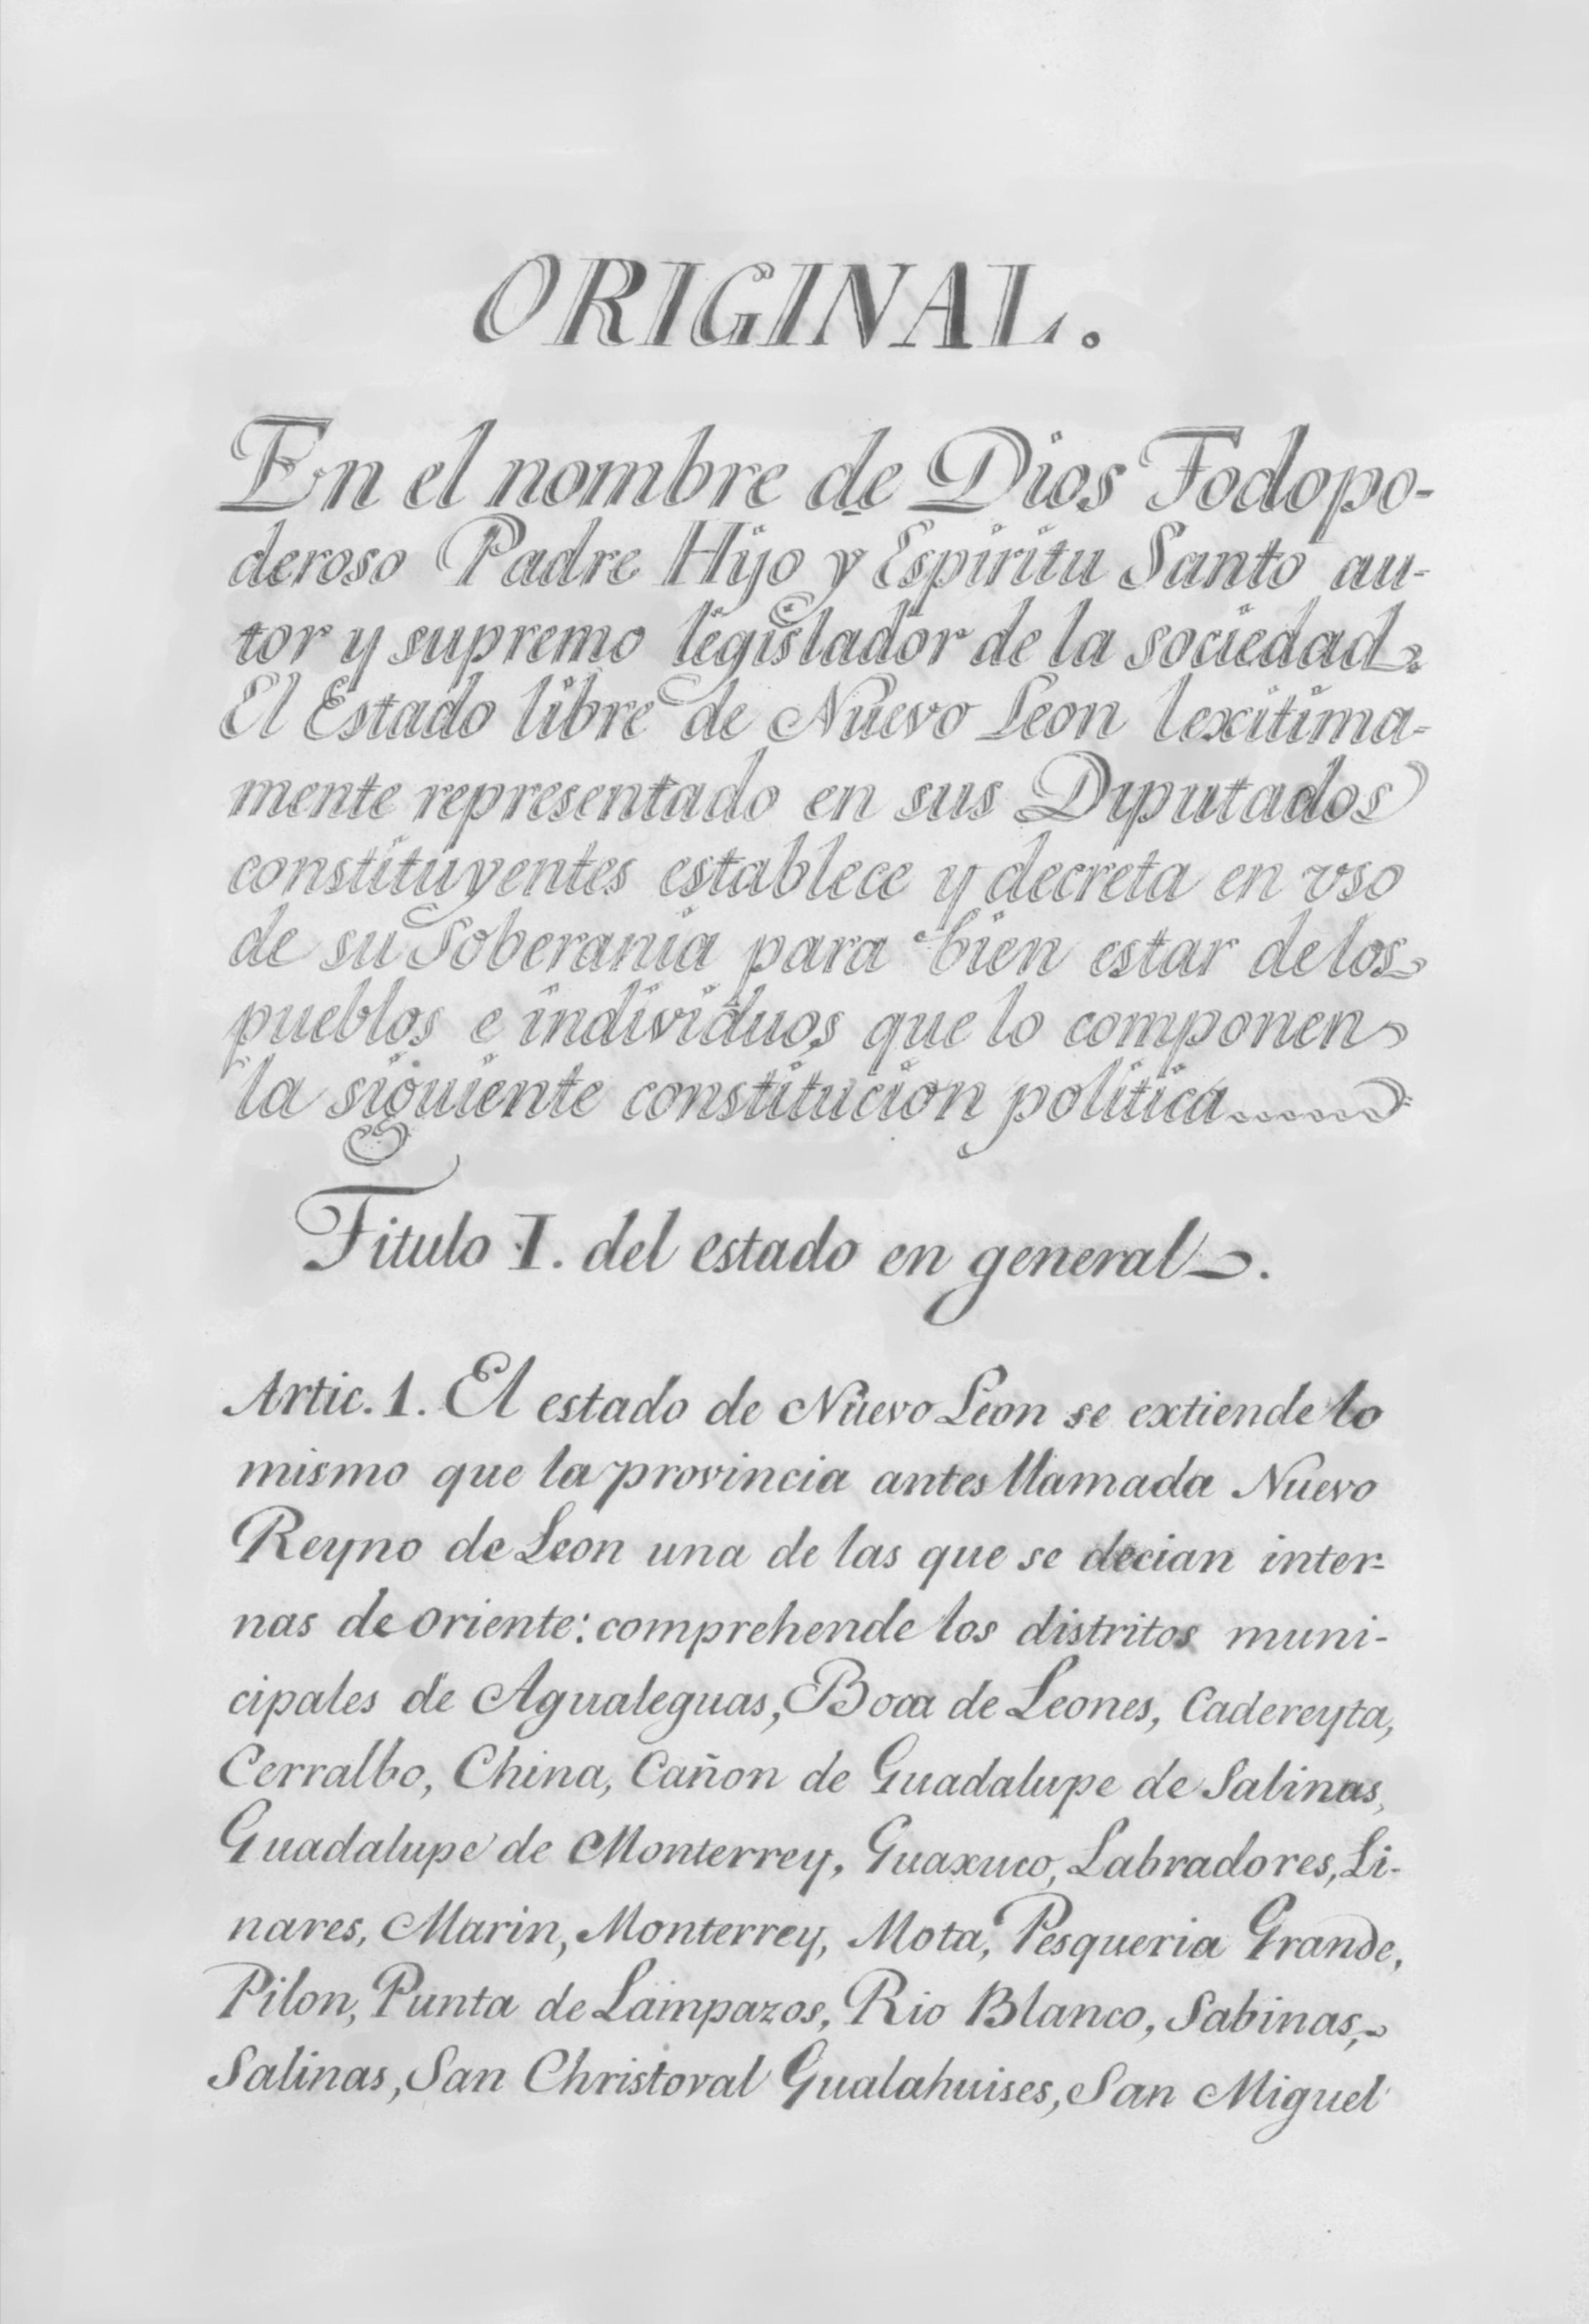 ORIGINAL.
En el nombre de Dios Todopo-
deroso Padre Hijo y Espiritu Santo au-
tor y supremo legislador de la sociedad.
El Estado libre de Nuevo Leon lexitima-
mente representado en sus Diputados
constituyentes establece y decreta en vso
de su Soberania para bien estar de los
pueblos e individuos que lo componen
la siguiente constitucion politica
Titulo I. del estado en general.
Artic. 1. El estado de Nuevo Leon se extiende lo
mismo que la provincia antes llamada Nuevo
Reyno de Leon una de las que se decian inter-
nas de oriente: comprehende los distritos muni-
cipales de Agualeguas, Boca de Leones, Cadereyta,
Cerralbo, China, Cañon de Guadalupe de Salinas,
Guadalupe de Monterrey, Guaxuco, Labradores, Li-
nares, Marin, Monterrey, Mota, Pesqueria Grande,
Pilon, Punta de Lampazos, Rio Blanco, Sabinas,
Salinas, San Christoval Gualahuises, San Miguel